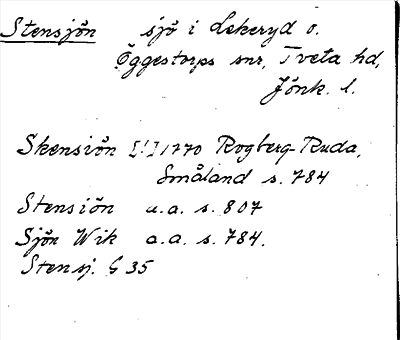 Stensjön sjö i Lekeryd o.
Öggestorps snr, Tveta hd,
Jönk. l.
Skensiön [!] 1770 Rogberg-Ruda,
Småland s. 784
Stensiön a.a. s. 807
Sjön Wik a.a. s. 784.
Stensj. G 35